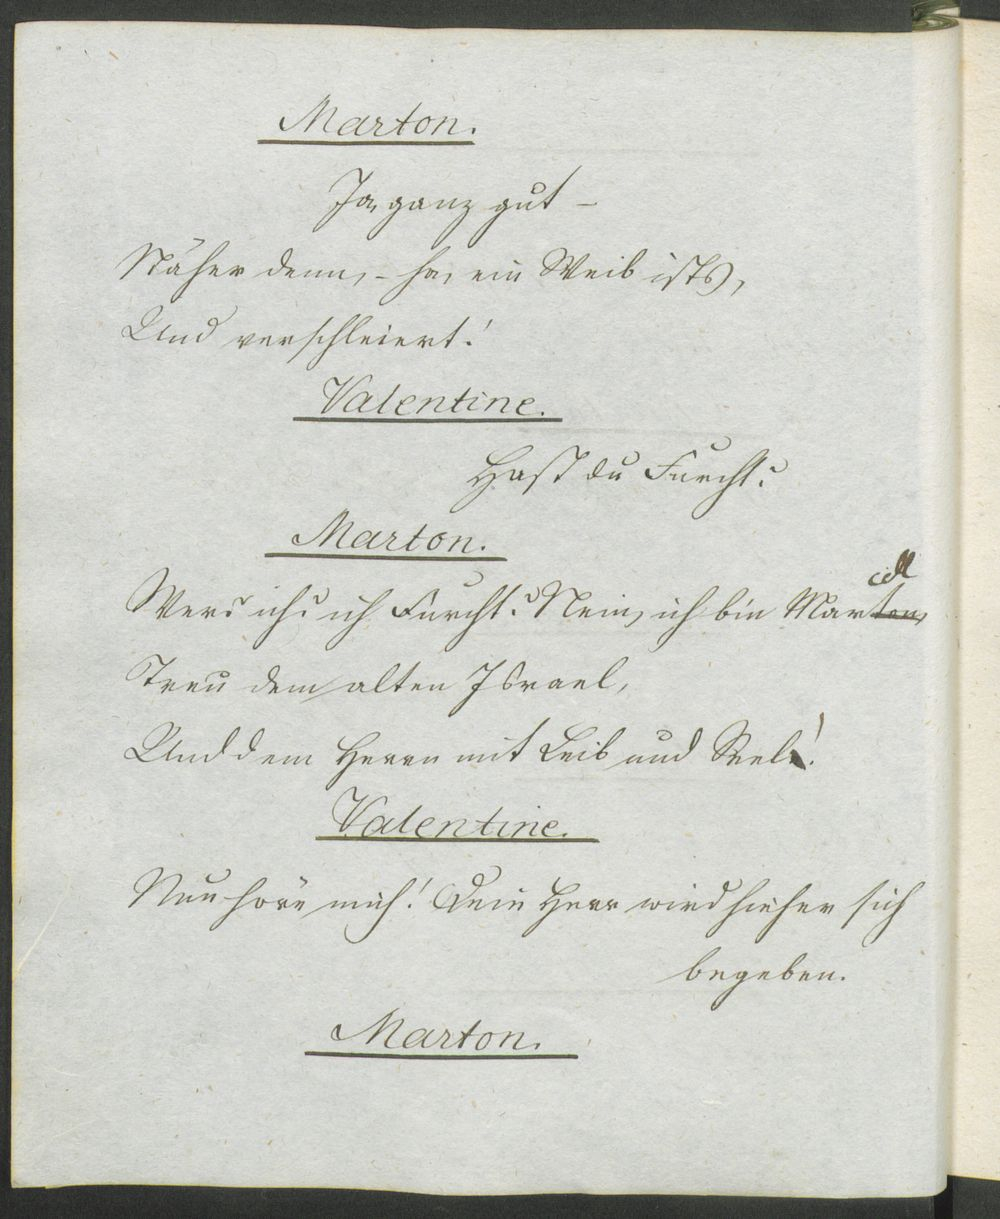 Marton.
Ja, ganz gut –
Näher denn, – ha, ein Weib ists,
Und verschleiert!
Valentine.
Hast du Furcht?
Marton.
Wer? ich? ich Furcht? Nein, ich bin Marton,
cell
Treu dem alten Israel,
Und dem Herrn mit Leib und Seel!
Valentine.
Nun höre mich! Dein Herr wird hieher sich
begeben.
Marton.